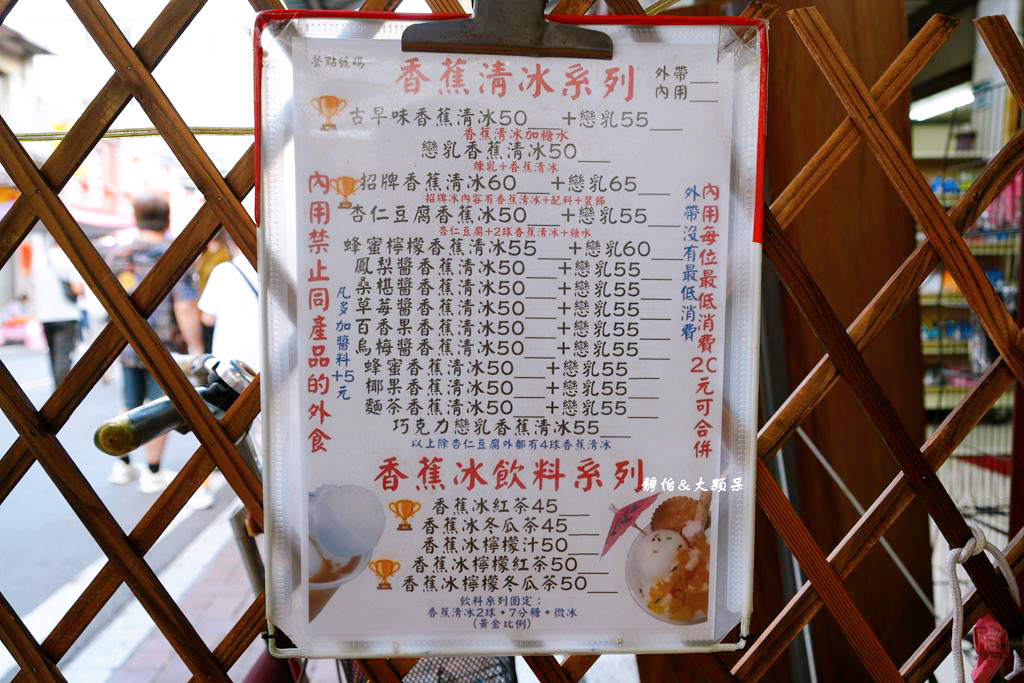 餐點號碼
香蕉清冰系列
外帶___
內用___
古早味香蕉清冰50___+戀乳55___
香蕉清冰加糖水
戀乳香蕉清冰50___
煉乳+香蕉清冰
招牌香蕉清冰60___+戀乳65___
招牌冰內容有香蕉清冰+配料+裝飾
杏仁豆腐香蕉清冰50___+戀乳55___
杏仁豆腐+2球香蕉清冰+糖水
蜂蜜檸檬香蕉清冰55___+戀乳60___
鳳梨醬香蕉清冰50___+戀乳55___
桑椹醬香蕉清冰50___+戀乳55___
草莓醬香蕉清冰50___+戀乳55___
百香果香蕉清冰50___+戀乳55___
烏梅醬香蕉清冰50___+戀乳55___
蜂蜜香蕉清冰50___+戀乳55___
椰果香蕉清冰50___+戀乳55___
麵茶香蕉清冰50___+戀乳55___
巧克力戀乳香蕉清冰55___
以上除杏仁豆腐外都有4球香蕉清冰
內用禁止同產品的外食
凡多加醬料+5元
內用每位最低消費20元可合併
外帶沒有最低消費
香蕉冰飲料系列
香蕉冰紅茶45___
香蕉冰冬瓜茶45___
香蕉冰檸檬汁50___
香蕉冰檸檬紅茶50___
香蕉冰檸檬冬瓜茶50___
飲料系列固定：
香蕉清冰2球・7分糖・微冰
(黃金比例)
靜怡&大顆呆